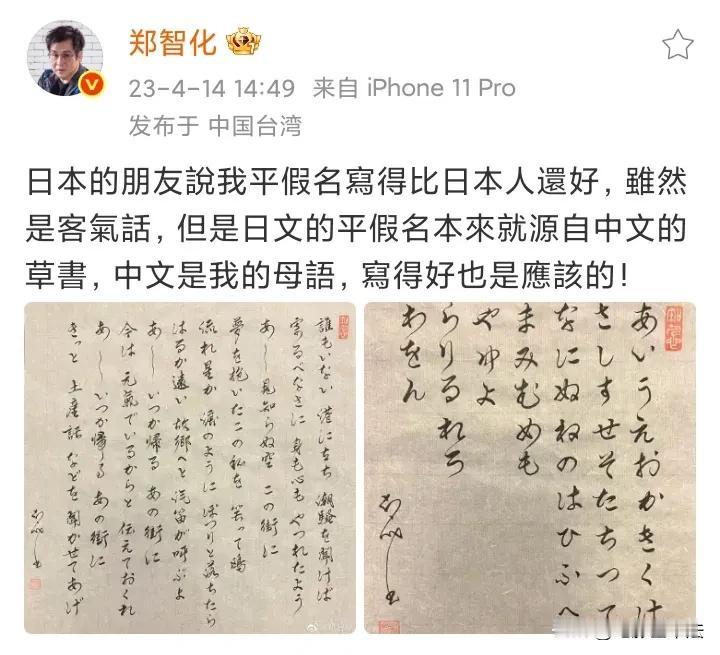 郑智化
23-4-14 14:49 来自 iPhone 11 Pro
发布于 中国台湾
日本的朋友說我平假名寫得比日本人還好，雖然
是客氣話，但是日文的平假名本來就源自中文的
草書，中文是我的母語，寫得好也是應該的！
誰もいない 港に立ち 潮騒を聞けば
寄るべなさに 身も心も やつれたよう
あー 見知らぬ空 この街に
夢を抱いたこの私を 笑って鴎
流れ星か 涙のように ぽつりと落ちたら
はるか遠い 故郷へと 汽笛が呼ぶよ
あー いつか帰る あの街に
今は 元氣でいるからと 伝えておくれ
あー いつか帰る あの街に
きっと 土産話 などを聞かせてあげ
あいうえおかきくけ
さしすせそたちつて
なにぬねのはひふへ
まみむめも
やゆよ
らりるれろ
わをん